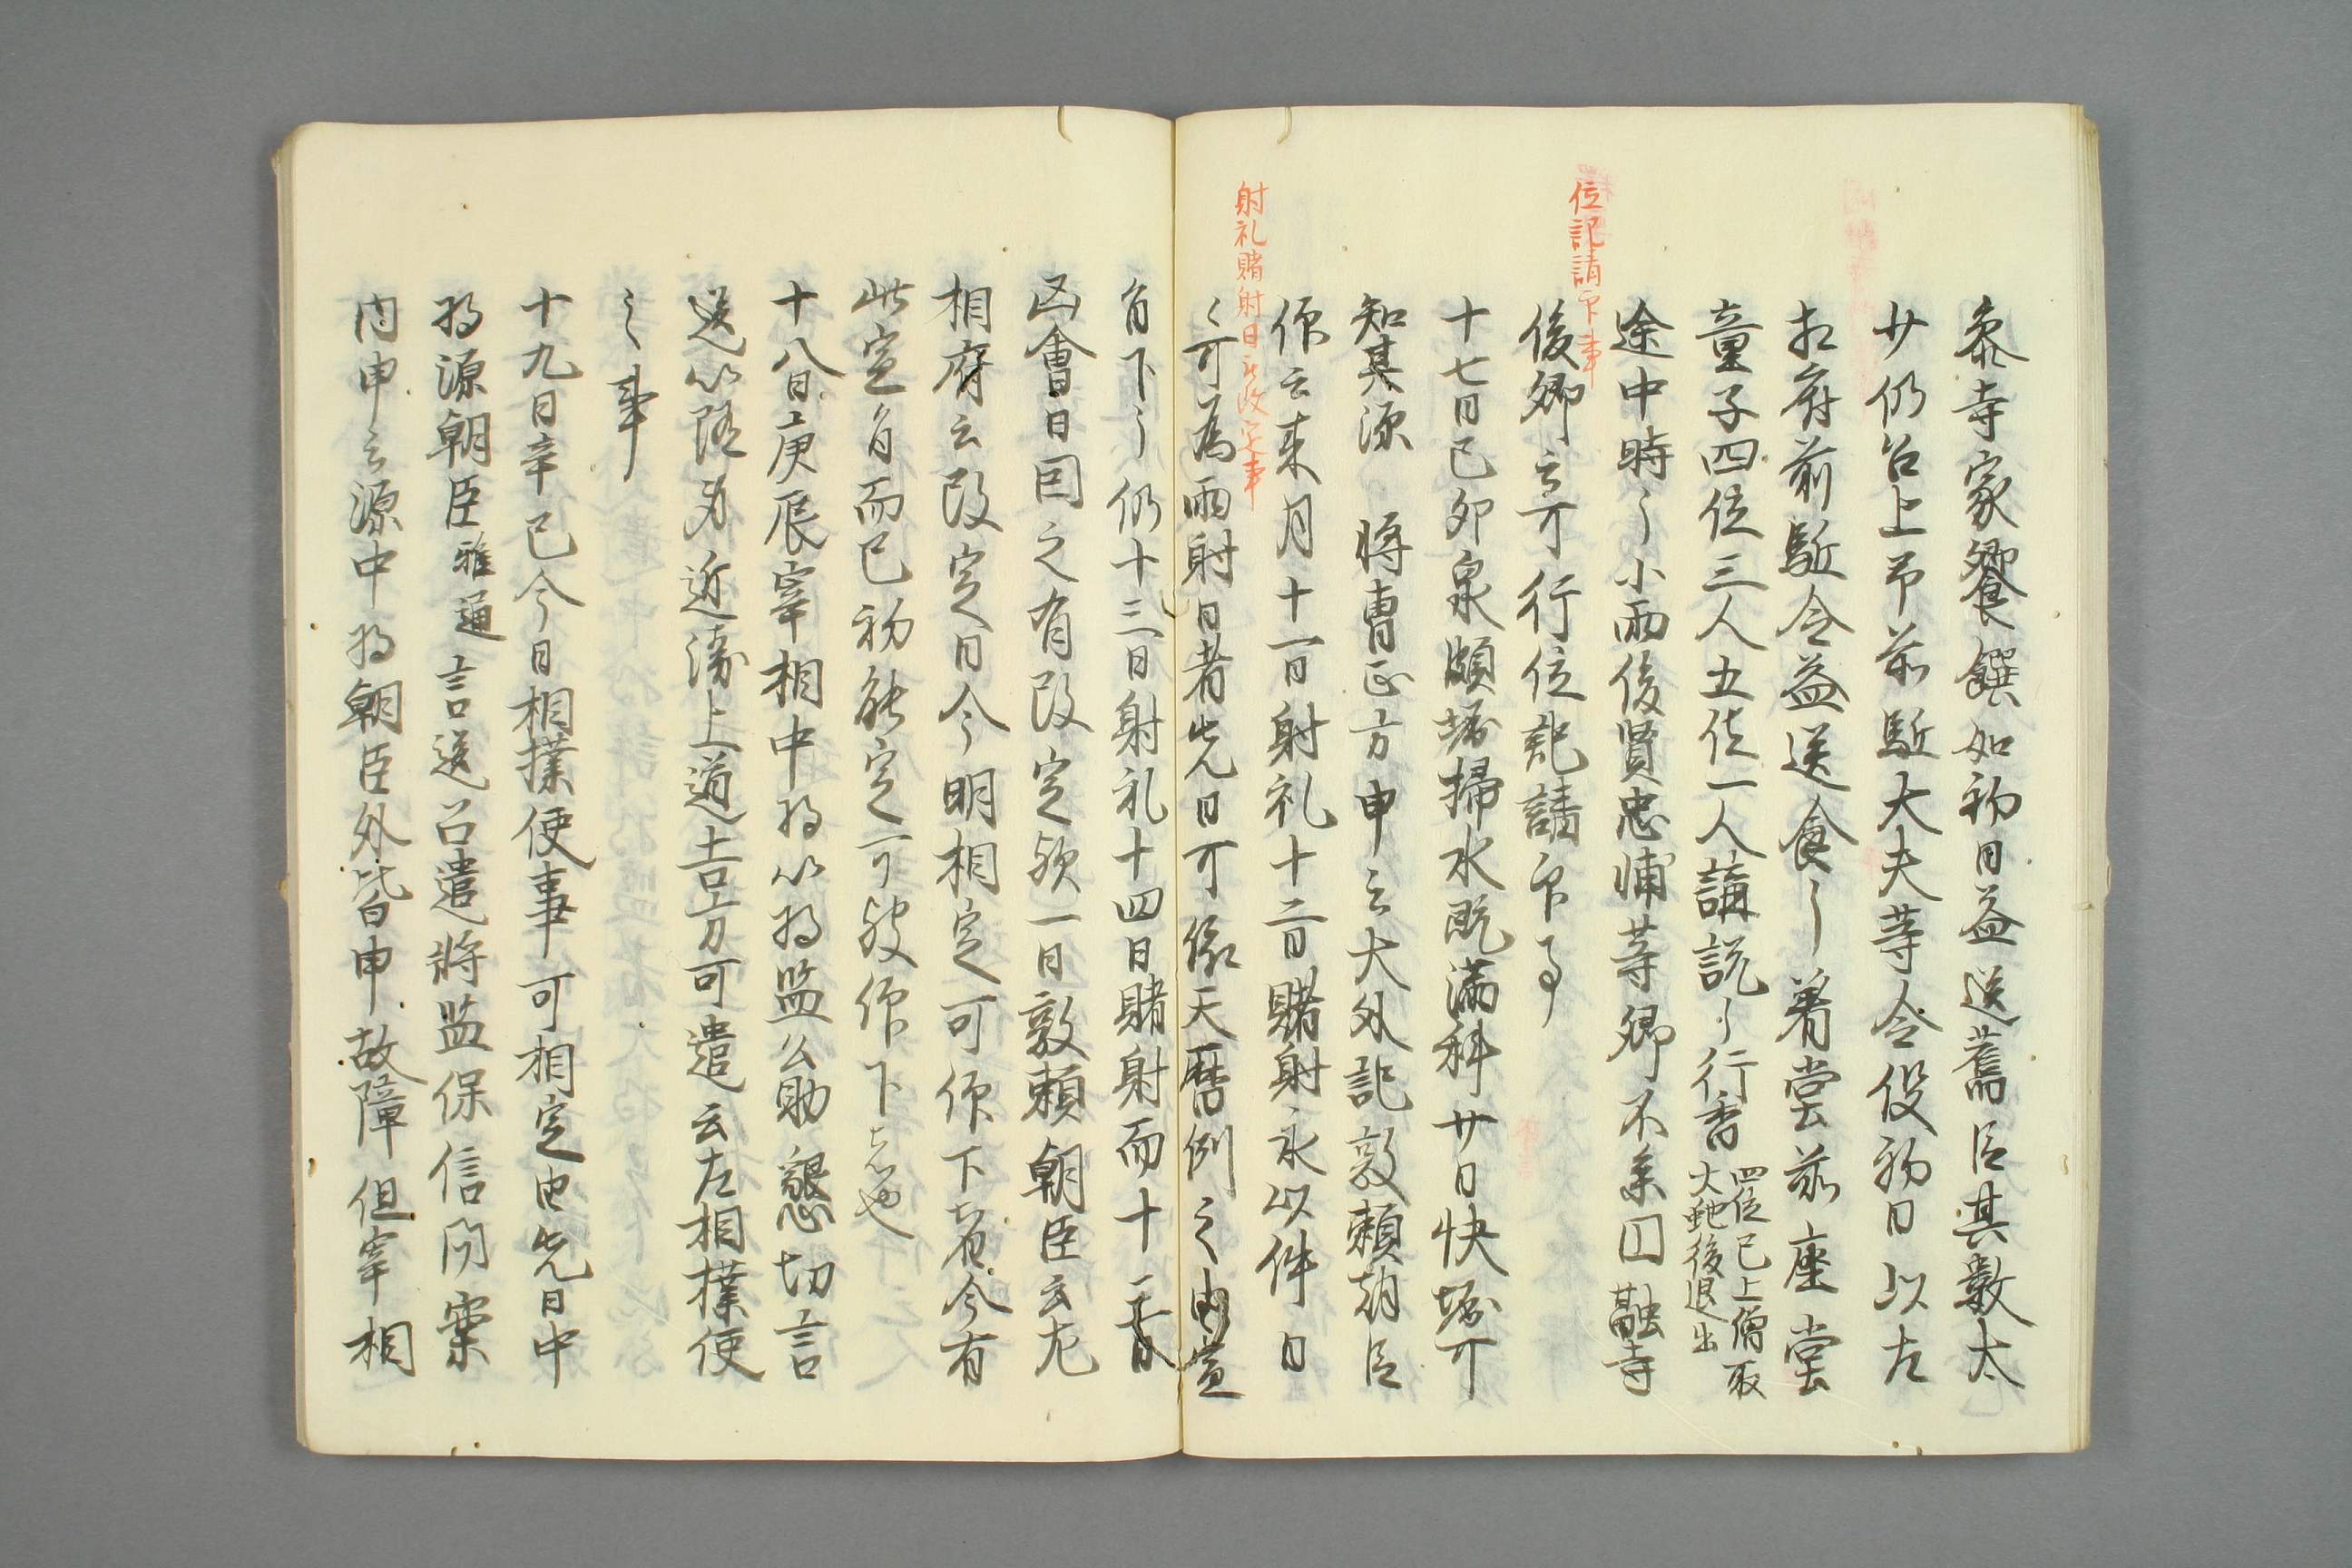 参寺家饗饌如初日益送薦臣其数太
廿仍召上卑前駈大夫等令役初日以左
相府前駈令益送食了着堂前座堂
童子四位三人五位一人講説了行香四位已上僧取
火虵後退出
途中時々小雨後賢忠輔等卿不参円融寺
位記請印事
後卿云可行位記請印事
十七日己卯泉頗堀掃水既満科廿日快堀可
知其源 将曹正方申云大外記敦頼朝臣
仰云来月十一日射礼十二日賭射永以件日
射礼賭射日永改定事
々可為両射日者先日可依天暦例之由宣
旨下了仍十三日射礼十四日賭射而十二日
凶會日因之有改定欤一日敦頼朝臣云左
相府云改定日今明相定可仰下者今有
此定旨而已初能定可被仰下者也
十八日庚辰宰相中将以将監公助懇切言
送以随身近衛上道吉方可遣云左相撲使
之事
十九日辛巳今日相撲使事可相定由先日中
将源朝臣雅通言送召遣将監保信問案
内申云源中将朝臣外皆申故障但宰相